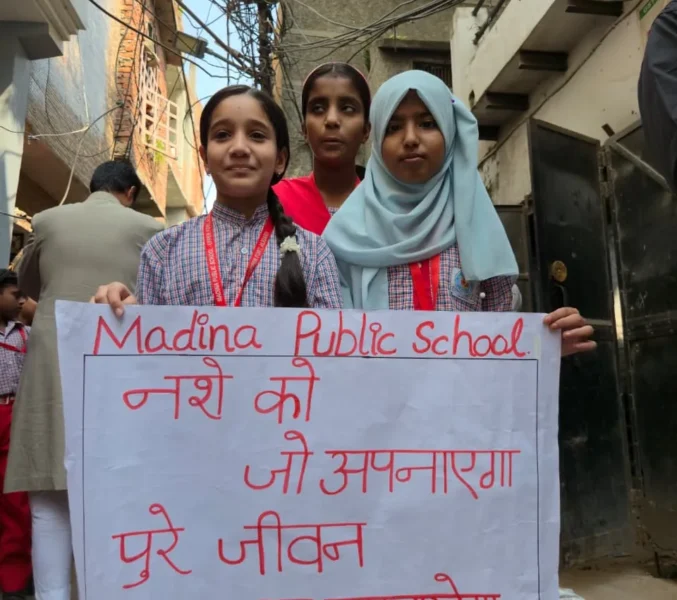 Madina Public School.
नशे को
जो अपनाएगा
पुरे जीवन